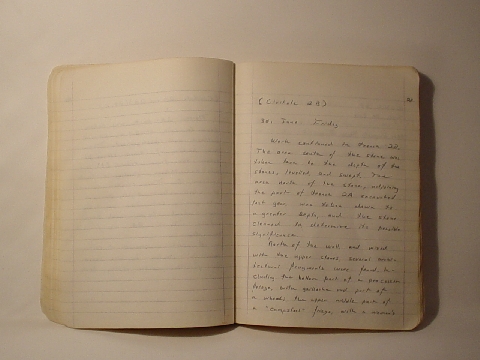 (Cistele 2B)
Work continued in Trench 2A.
The area south of the stone was
taken down to the depth of the
stones, leveled and swept. The
area north of the stone, including
the part of Trench 2A excavated
last year was taken down to
a greater depth, and the stone
cleaned to determine its possible
significance.
North of the wall and mixed
with the upper stones several archi-
tectural fragments were found in-
cluding the bottom part of a procession
frieze, with guilloche and part of
a wheel; the upper middle part of
a "banquet" frieze with a woman's